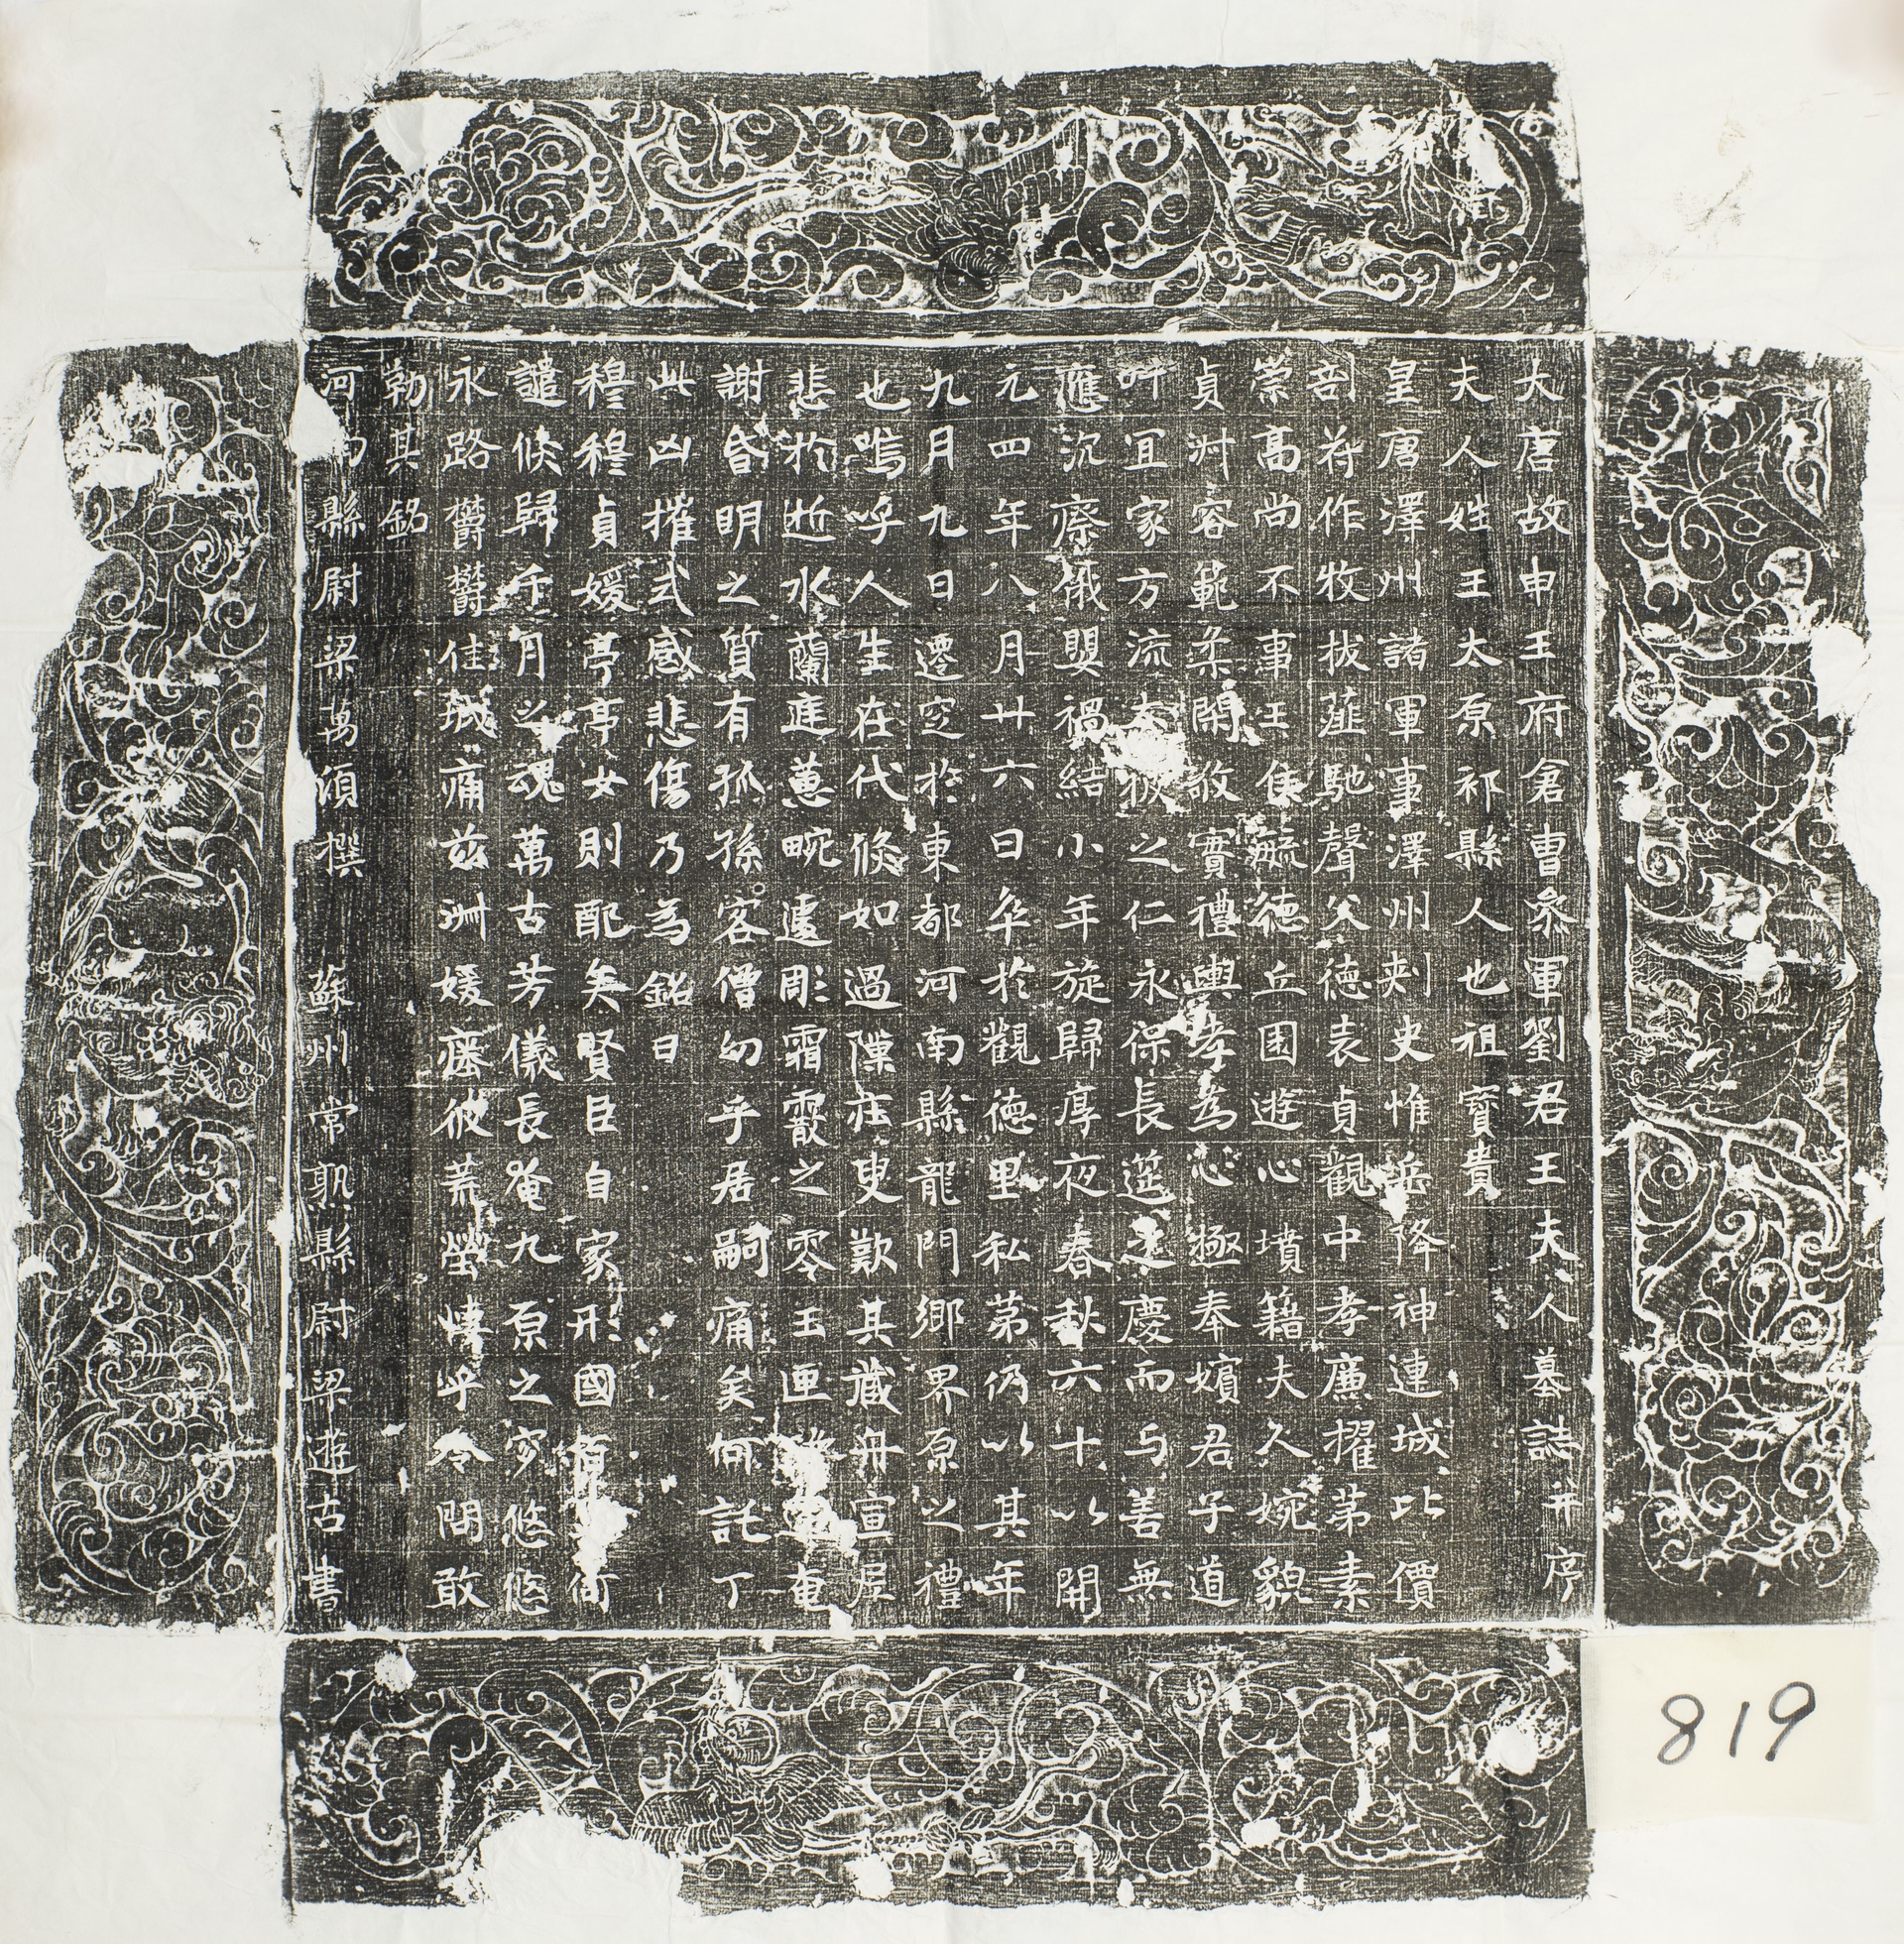 大唐故申王府倉曹叅軍劉君王夫人墓誌并序
夫人姓王太原祁縣人也祖寶貴
皇唐澤州諸軍事澤州刾史惟岳降神連城比價
剖符作牧拔薤馳聲父德表貞觀中孝廉擢苐素
崇高尚不事王侯毓德丘園遊心墳籍夫人婉貌
貞淑容範柔閑敬實禮輿孝為心極奉嬪君子道
叶宜家方流太
之仁永保長筵之慶而与善無
應沉瘵俄嬰禍結小年旋歸厚夜春秋六十以開
元四年八月廿六日卒於觀德里私苐仍以其年
九月九日遷窆於東都河南縣龍門鄉界原之禮
也嗚呼人生在代倐如過隟莊叟歎其藏舟宣尼
悲於逝水蘭蓰蕙畹遽彫霜霰之零玉匣
奄
謝昏明之質有孤孫客僧幼乎居嗣痛矣何託丁
此凶摧式感悲傷乃為銘曰
穆穆貞媛亭亭女則配矣賢臣自家形國
譴倐歸千月之魂萬古芳儀長奄九原之穸悠悠
永路欝欝佳城痛兹淑媛瘞彼荒塋悽乎令問敢
勒其銘
河
縣尉梁萬頃撰 蘇州常熟縣尉梁遊古書
819